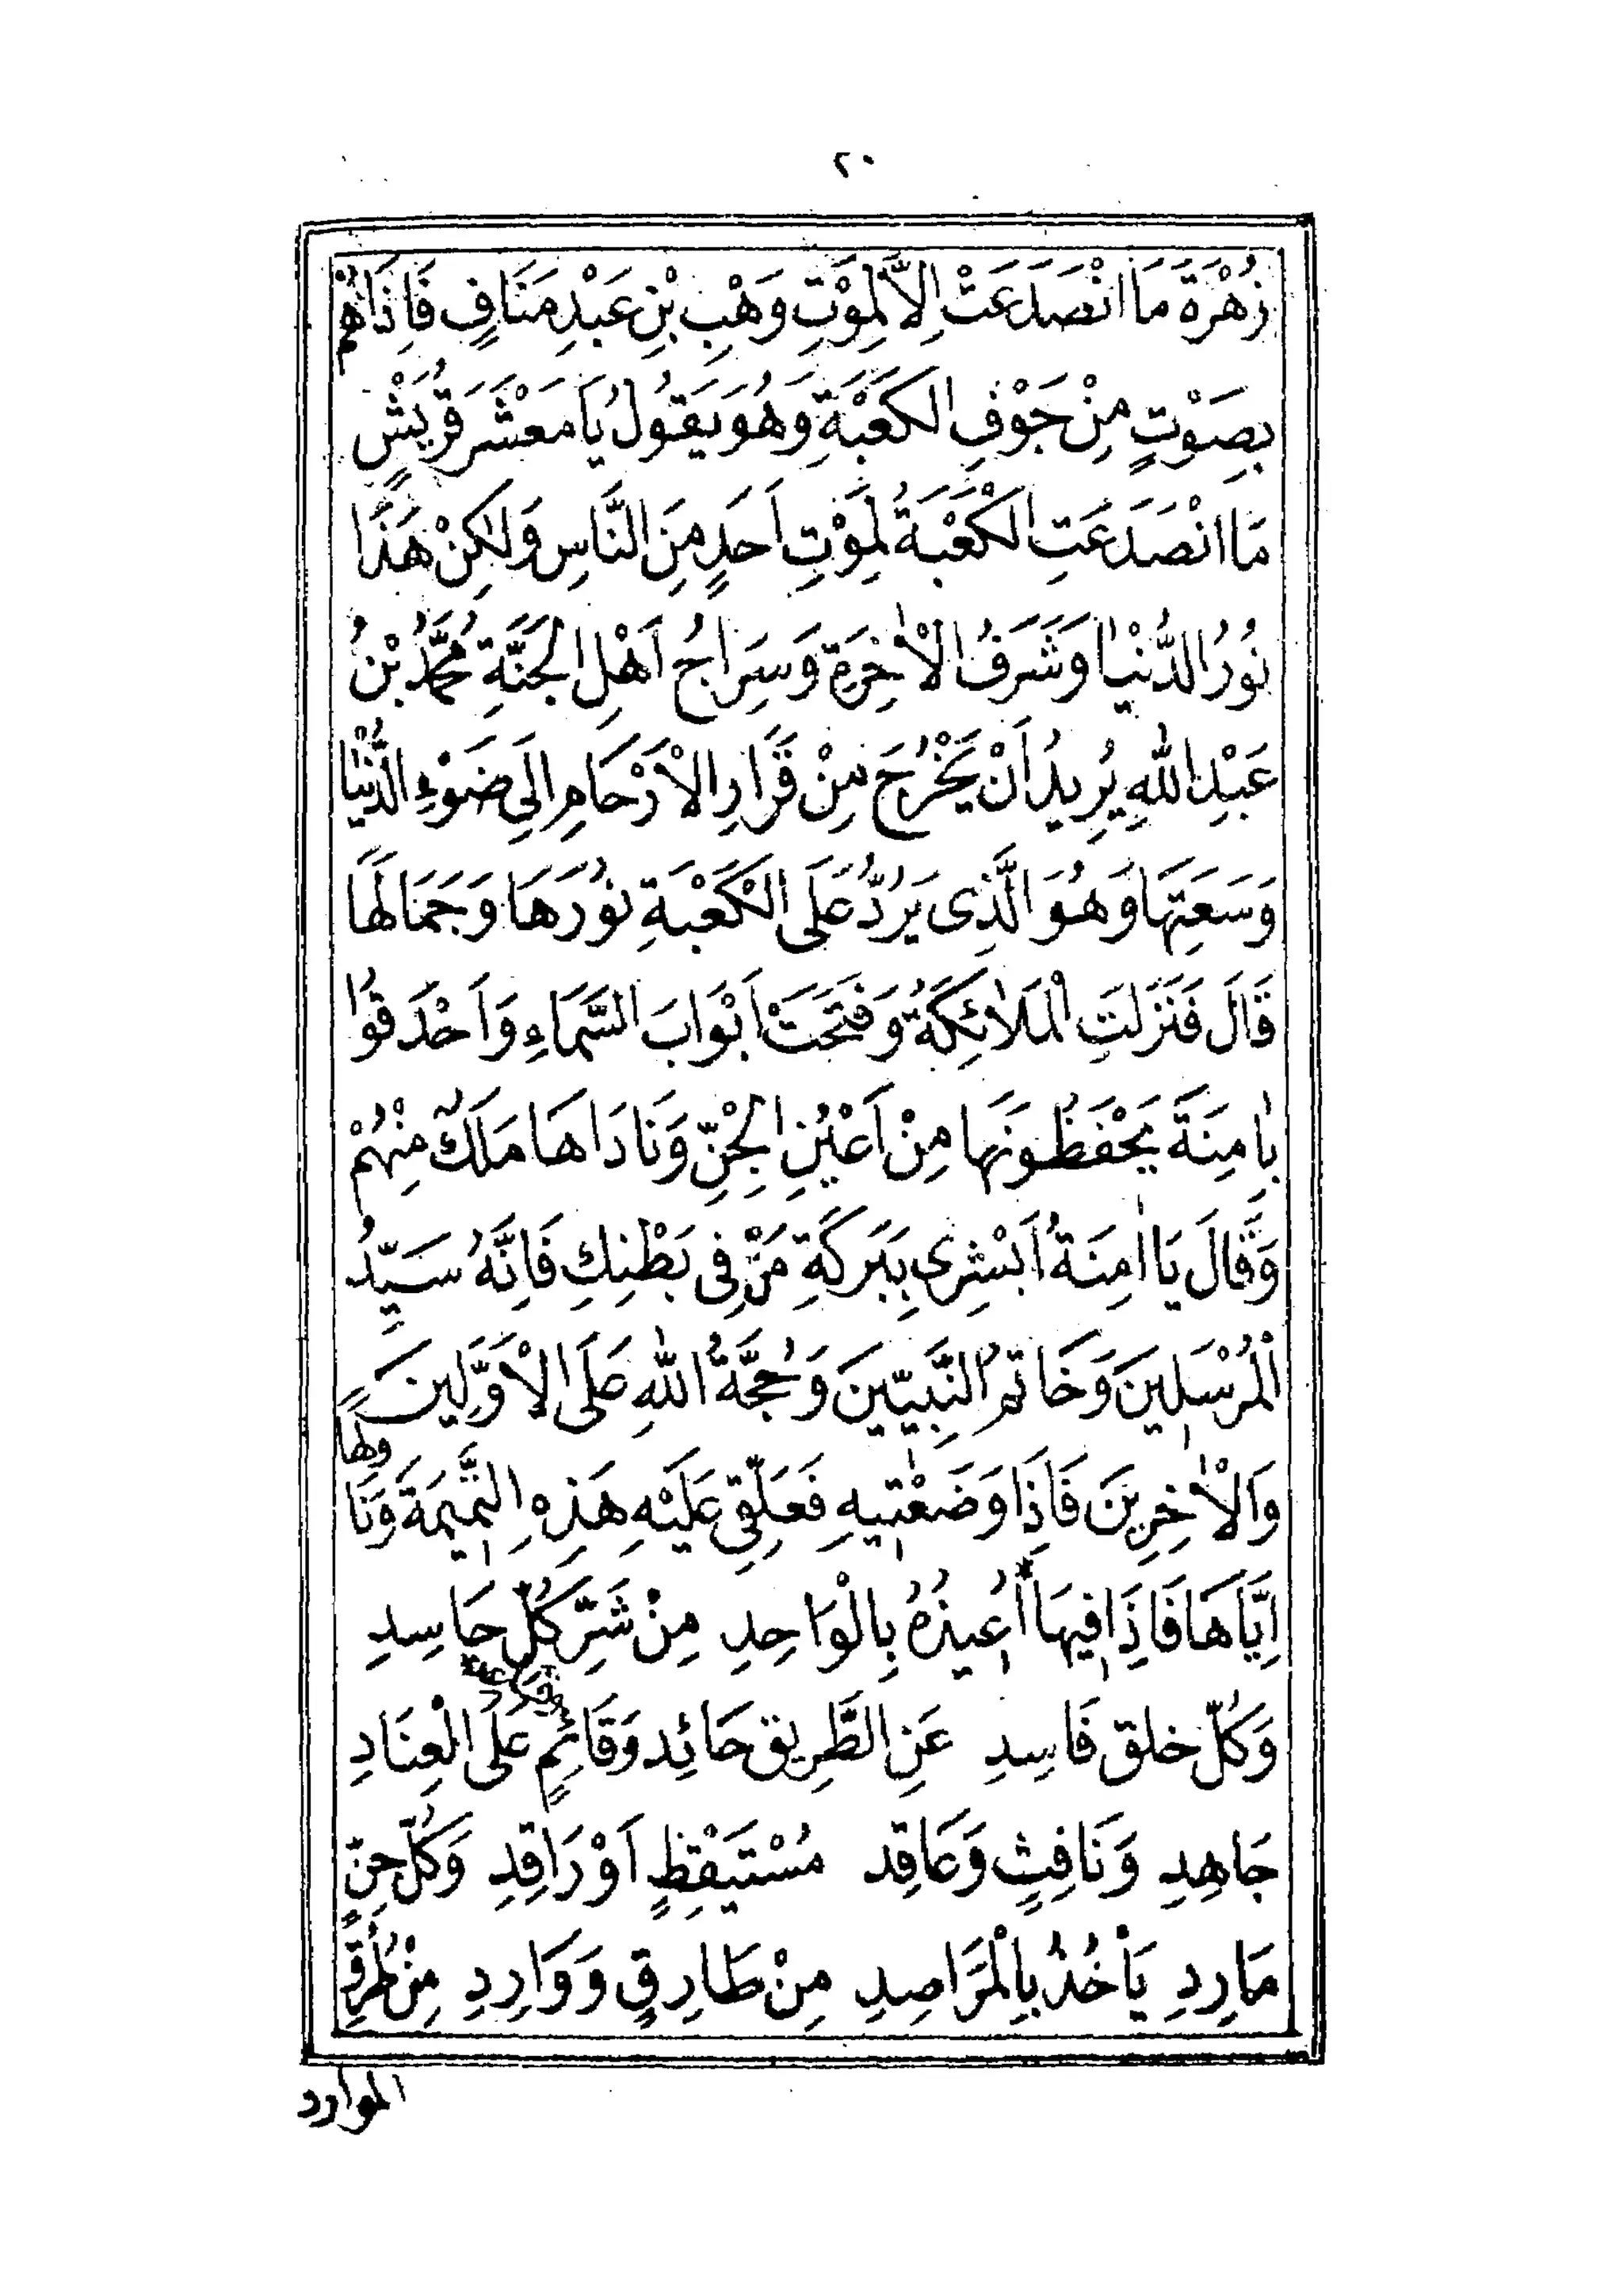 ٢٠
زُهْرَةَ مَا انْصَدَعَتْ اِلَّا لِمَوْتِ وَهْبِ بْنِ عَبْدِ مَنَافٍ فَاِذَاهُمْ
بِصَوْتٍ مِنْ جَوْفِ الْكَعْبَةِ وَهُوَ يَقُولُ يَا مَعْشَرَ قُرَيْشٍ
مَا انْصَدَعَتِ الْكَعْبَةُ لِمَوْتِ اَحَدٍ مِنَ النَّاسِ وَلٰكِنْ هَذَا
نُورُ الدُّنْيٰا وَشَرَفُ الْاٰخِرَةِ وَسِرَاجُ اَهْلِ الْجَنَّةِ مُحَمَّدُ بْنُ
عَبْدِ اللّٰهِ يُرِيدُ اَنْ يَخْرُجَ مِنْ قَرَارِ الْاَرْحَامِ اِلَى ضَوْءِ الدُّنْيَا
وَسَعَتِهَا وَهُوَ الَّذِى يَرُدُّ عَلَى الْكَعْبَةِ نُورَهَا وَجَمَالَهَا
قَالَ فَنَزَلَتِ الْمَلَائِكَةُ وَفَتَحَتْ اَبْوَابَ السَّمَاءِ وَاَحْدَقُوا
بِاٰمِنَةَ يَحْفَظُونَهَا مِنْ اَعْيُنِ الْجِنِّ وَنَادَاهَا مَلَكٌ مِنْهُمْ
وَقَالَ يَا اٰمِنَةُ اَبْشِرِى بِبَرَكَةِ مَنْ فِى بَطْنِكِ فَاِنَّهُ سَيِّدُ
الْمُرْسَلِينَ وَخَاتَمُ النَّبِيّينَ وَحُجَّةُ اللّٰهِ عَلَى الْاَوَّلِينَ
وَالْاٰخِرِينَ فَاِذَا وَضَعْتِيهِ فَعَلِّقِى عَلَيْهِ هَذِهِ التَّمِيمَةَ وَنَا ولها
اِيَّاهَا فَاِذَا فِيهَا * اُعِيذُهُ بِالْوَاحِدِ مِنْ شَرِّ كُلِّ حَاسِدِ
وَكُلِّ خلق فَاسِدِ عَنِ الطَّرِيقِ حَائِد وَقَائِمٍ عَلَى الْعِنَادِ
جَاهِدِ وَنَافِثٍ وَعَاقِد مُسْتَيْقِظٍ اَوْ رَاقِدِ وَكُلِّ جِنٍّ
مَارِدِ يَأْخُذُ بِالْمَرَاصِدِ مِنْ طَارِقٍ وَوَارِدِ مِنْ طُرُقِ
الموارد